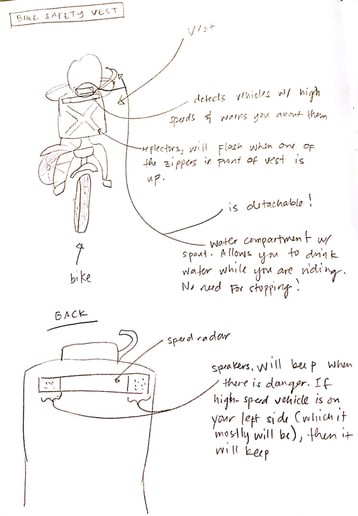 BIKE SAFETY VEST
Vest
detects vehicles w/ high
speeds & warns you about them
reflectors, will flash when one of
the zippers in front of vest is
up.
is detachable!
water compartment w/
spout. Allows you to drink
water while you are riding.
No need for stopping!
bike
BACK
speed radar
speakers, will beep when
there is danger. If
high-speed vehicle is on
your left side (which it
mostly will be), then it
will beep